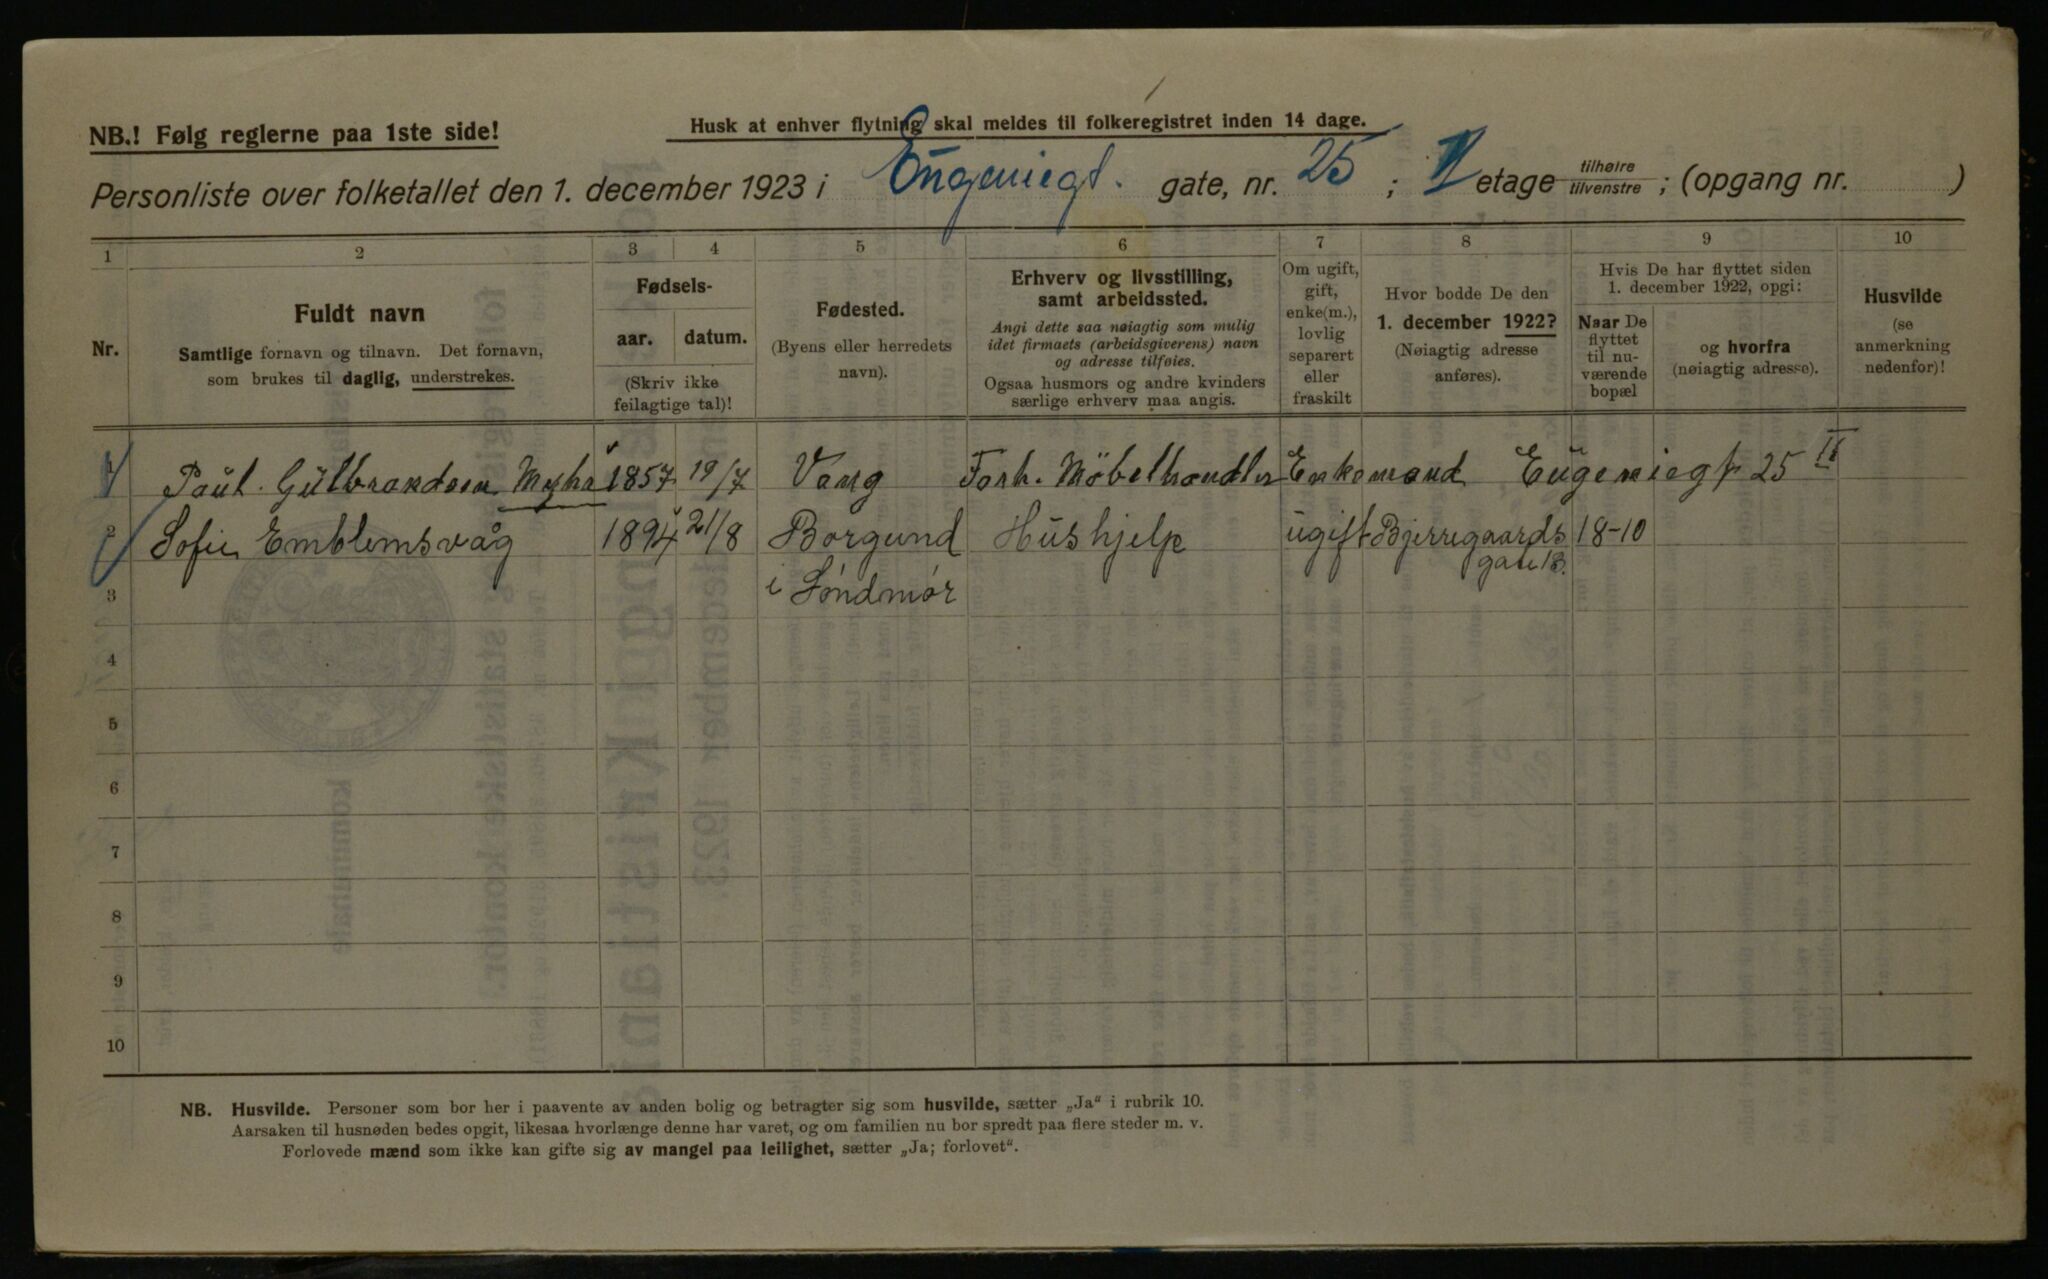 NB.! Følg reglerne paa 1ste side!
Husk at enhver flytning skal meldes til folkeregistret inden 14 dage.
Personliste over folketallet den 1. december 1923 i Eugeniegt. gate, nr. 25; etage tilhøire tilvenstre; (opgang nr. )
1 2 3 4 5 6 7 8 9 10
Nr.
Fuldt navn
Samtlige fornavn og tilnavn. Det fornavn,
som brukes til daglig, understrekes.
Fødsels-
aar. datum.
(Skriv ikke
feilagtige tal)!
Fødested.
(Byens eller herredets
navn).
Erhverv og livsstilling,
samt arbeidssted.
Angi dette saa nøiagtig som mulig
idet firmaets (arbeidsgiverens) navn
og adresse tilføies.
Ogsaa husmors og andre kvinders
særlige erhverv maa angis.
Om ugift,
gift,
enke(m.),
lovlig
separert
eller
fraskilt
Hvor bodde De den
1. december 1922?
(Nøiagtig adresse
anføres).
Hvis De har flyttet siden
1. december 1922, opgi:
Naar De
flyttet
til nu-
værende
bopæl
og hvorfra
(nøiagtig adresse).
Husvilde
(se
anmerkning
nedenfor)!
1 Paul Gulbrandsen Myhr 1857 19/7 Vang Forh. Möbelhandler Enkemand Eugeniegt 25 II
2 Sofie Emblemsvåg 1894 21/8 Borgund Hushjelp ugift Bjerregaards 18-10
gate 13.
3 i Søndmør
4
5
6
7
8
9
10
NB. Husvilde. Personer som bor her i paavente av anden bolig og betragter sig som husvilde, sætter „Ja“ i rubrik 10.
Aarsaken til husnøden bedes opgit, likesaa hvorlænge denne har varet, og om familien nu bor spredt paa flere steder m. v.
Forlovede mænd som ikke kan gifte sig av mangel paa leilighet, sætter „Ja; forlovet“.